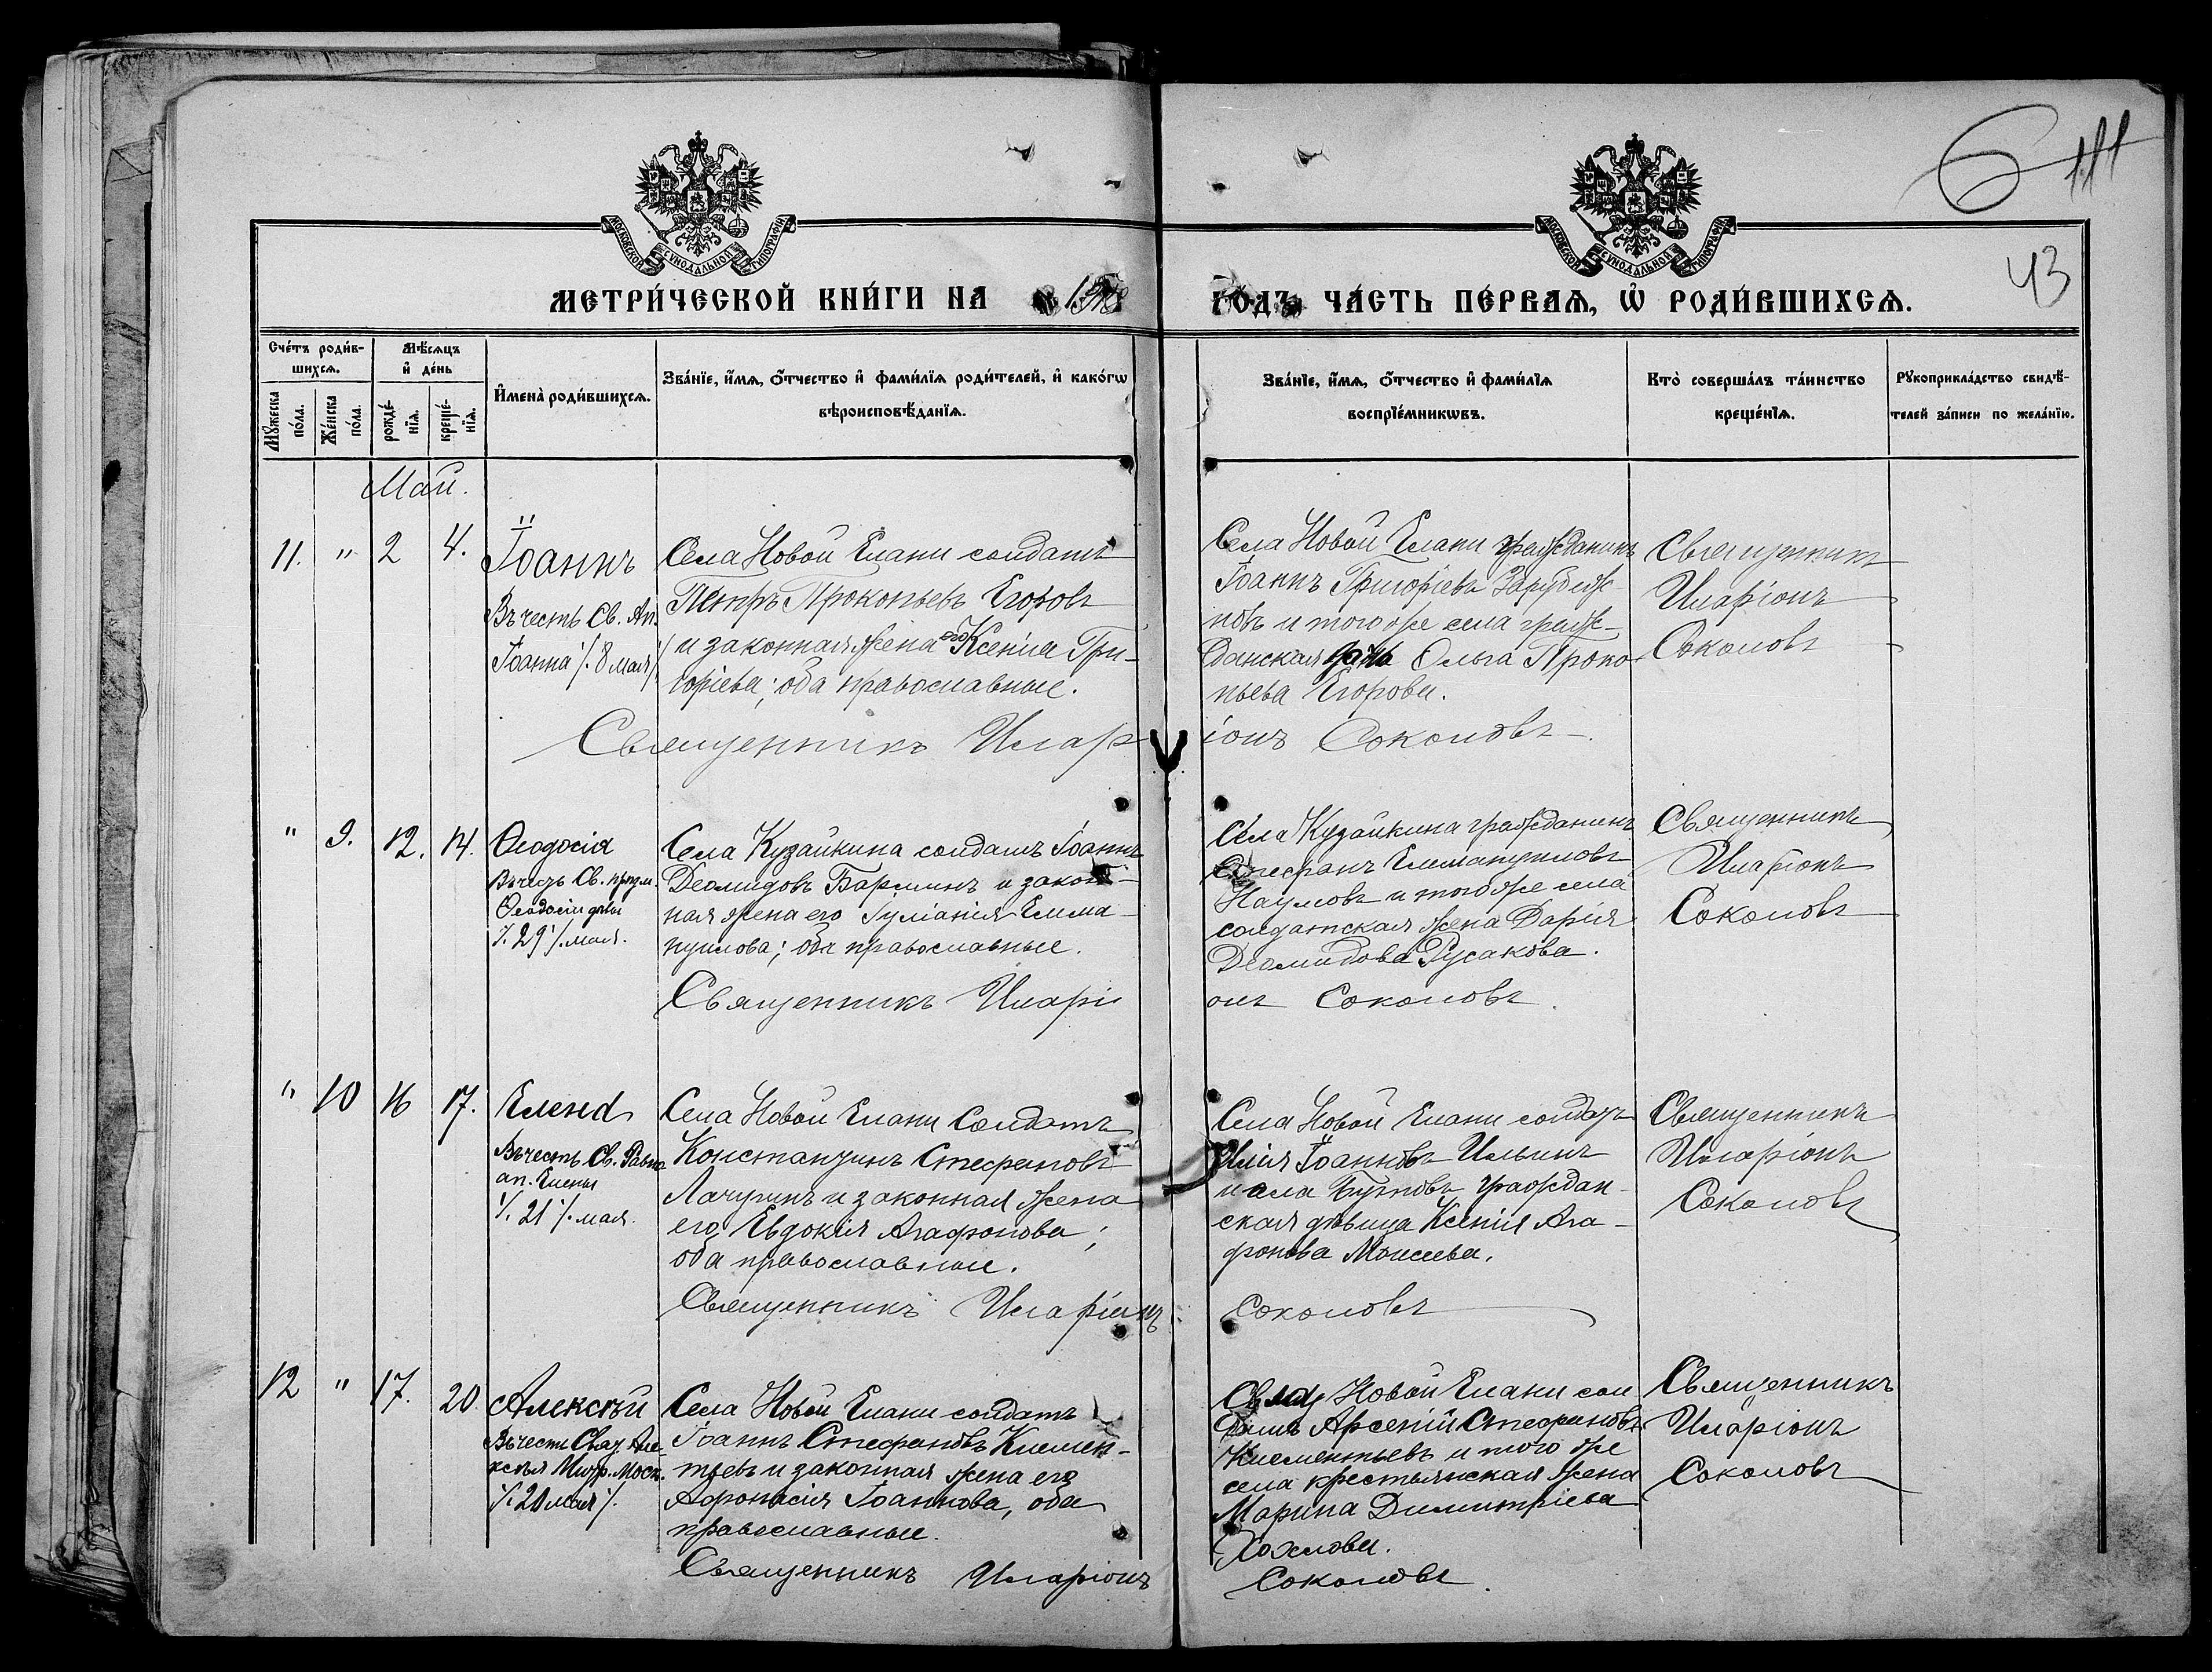 6 111
43
МОСКОВСКОЙ СѴНОДАЛЬНОЙ ТИПОГРАФІИ
МОСКОВСКОЙ СѴНОДАЛЬНОЙ ТИПОГРАФІИ
МЕТРИ́ЧЕСКОЙ КНИ́ГИ НА 1918 ГО́ДЪ ЧА́СТЬ ПЕ́РВАѦ, Ѽ РОДИ́ВШИХСѦ.
Сче́тъ роди́в-
шихсѧ.
Мѣ́сѧцъ
и҆ де́нь
Мꙋ́жеска
по́ла.
Же́нска
по́ла.
рожде́-
нїѧ.
креще́-
нїѧ.
И҆мена̀ роди́вшихсѧ.
Зва́нїе, и҆́мѧ, ѻ҆́тчество и҆ фами́лїѧ роди́телей, и҆ како́гѡ
вѣроисповѣ́данїѧ.
Зва́нїе, и҆́мѧ, ѻ҆́тчество и҆ фами́лїѧ
воспрїе́мникѡвъ.
Кто̀ соверша́лъ та́инство
креще́нїѧ.
Рꙋкоприкла́дство свидѣ́-
телей за́писи по жела́нїю.
Май.
11. " 2 4.
Іоаннъ
Въ честь Св. Ап.
Іоанна /. 8 мая /.
Села Новой Елани солдатъ
Петръ Прокопьевъ Егоровъ
и законная жена его Ксенія Гри-
горіева; оба православные.
Села Новой Елани гражданинъ
Іоаннъ Григоріевъ
новъ и того же села граж-
данская дочь Ольга Проко-
пьева Егорова.
Священникъ
Иларіонъ
Соколовъ
Священникъ Илар іонъ Соколовъ
" 9. 12. 14.
Ѳеодосія
Въ честь Св. прпдм.
Ѳеодосіи дѣвы
/. 29 /. мая.
Села Кузайкина солдатъ Іоаннъ
Деомидовъ Бармин и закон-
ная жена его Іуліанія Емма-
нуилова; оба православные.
Села Кузайкина гражданинъ
Стефанъ Еммануиловъ
Наумовъ и того же села
солдатская жена Дарія
Деомидова Русакова.
Священникъ
Иларіонъ
Соколовъ
Священникъ Иларі онъ Соколовъ
" 10 16 17.
Елена
Въ честь Св. Равно
ап. Елены
/. 21 /. мая.
Села Новой Елани Солдатъ
Константинъ Стефановъ
Лачугинъ и законная жена
его Евдокія Агафонова;
оба православные.
Села Новой Елани солдатъ
Илія Іоанновъ Ильинъ
и села Бутковъ граждан-
ская дѣвица Ксенія Ага-
фонова Моисеева.
Священникъ
Иларіонъ
Соколовъ
Священникъ Иларіонъ Соколовъ
12 " 17. 20
Алексѣй
Въ честь Свят. Але-
ксѣя Митр. Моск.
/. 20 мая /.
Села Новой Елани солдатъ
Іоаннъ Стефановъ Клемен-
тьевъ и законная жена его
Афонасія Іоаннова, оба
православные.
Села Новой Елани сол
датъ Арсеній Стефановъ
Клементьевъ и того же
села крестьянская жена
Марина Димитріева
Хохлова.
Священникъ
Иларіонъ
Соколовъ
Священникъ Иларіонъ Соколовъ.